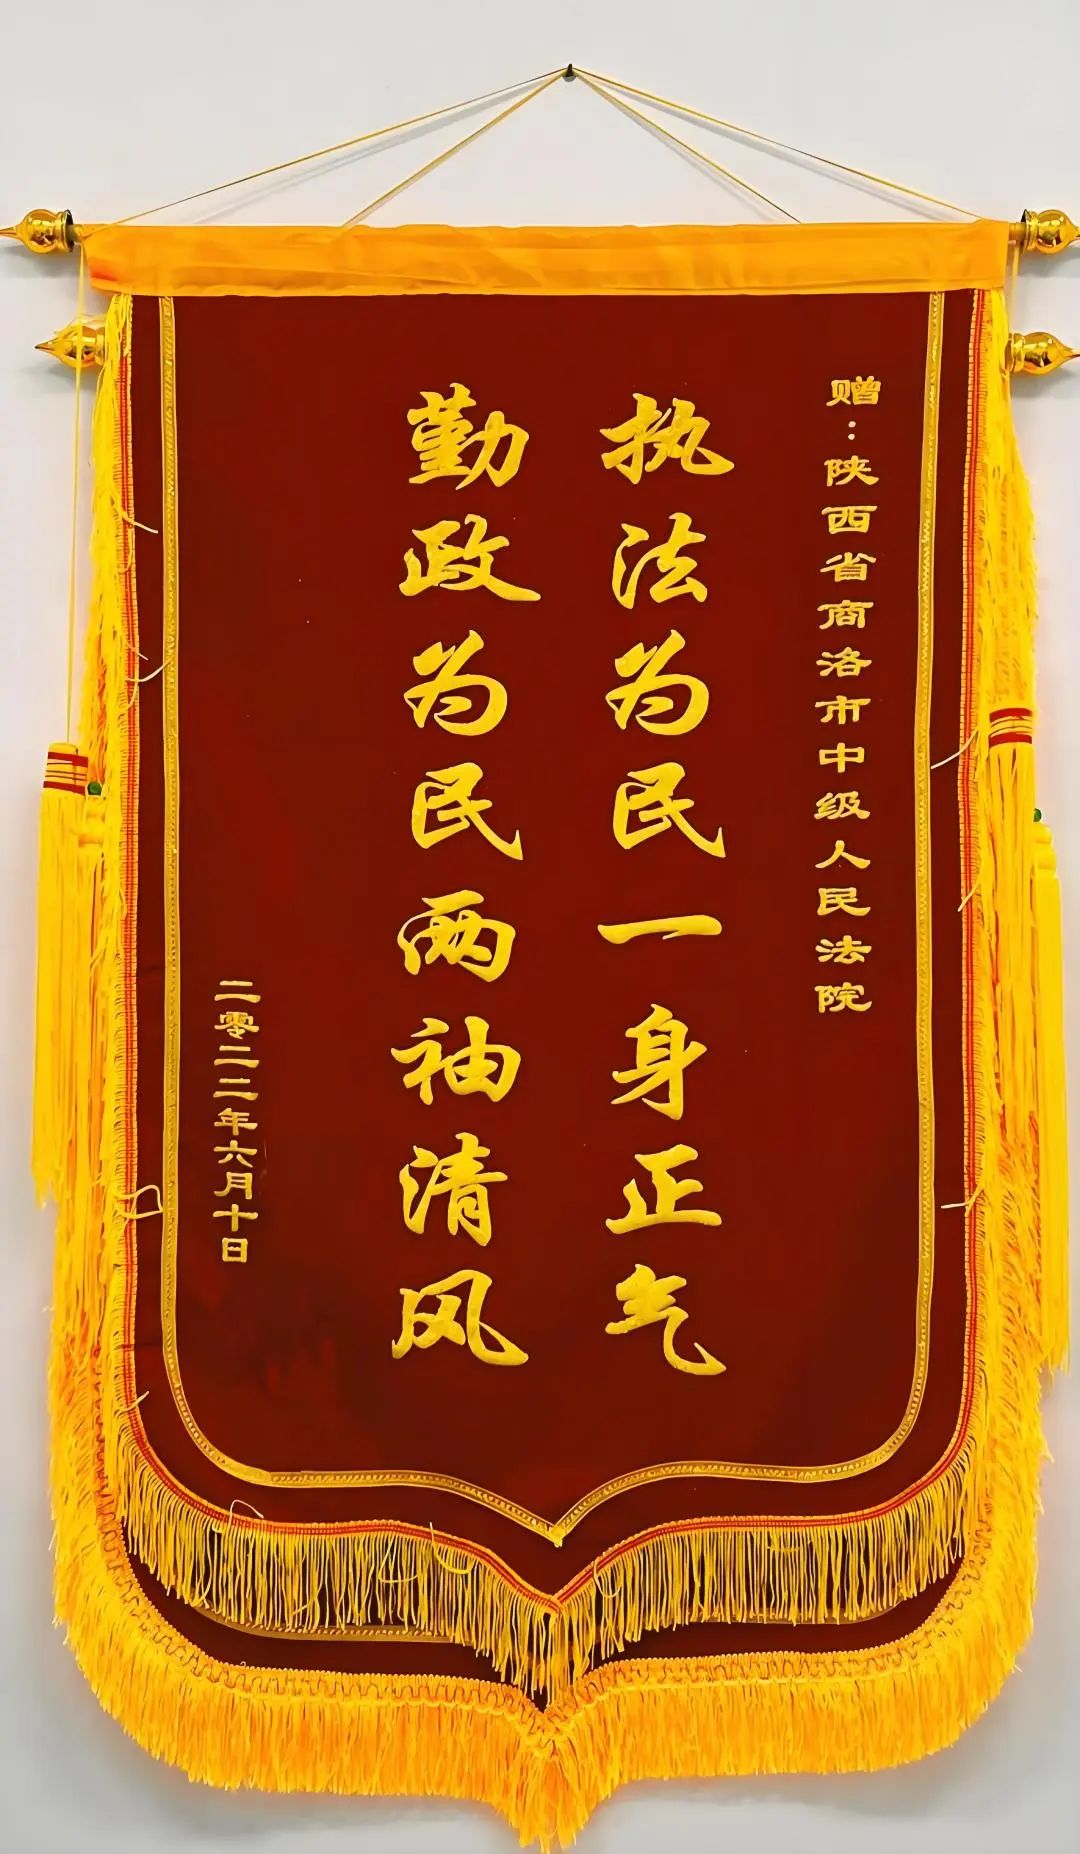 赠：陕西省商洛市中级人民法院
执法为民一身正气
勤政为民两袖清风
二零二二年六月十日